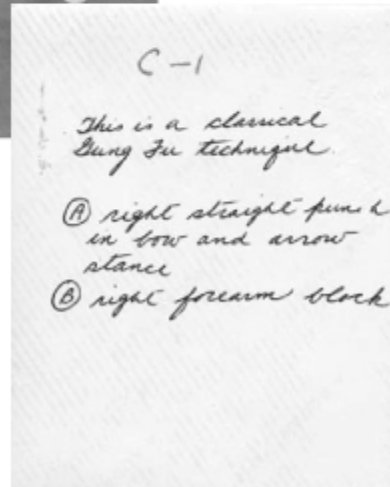 C-1
This is a classical
Gung Fu technique.
Ⓐ right straight punch
in bow and arrow
stance
Ⓑ right forearm block